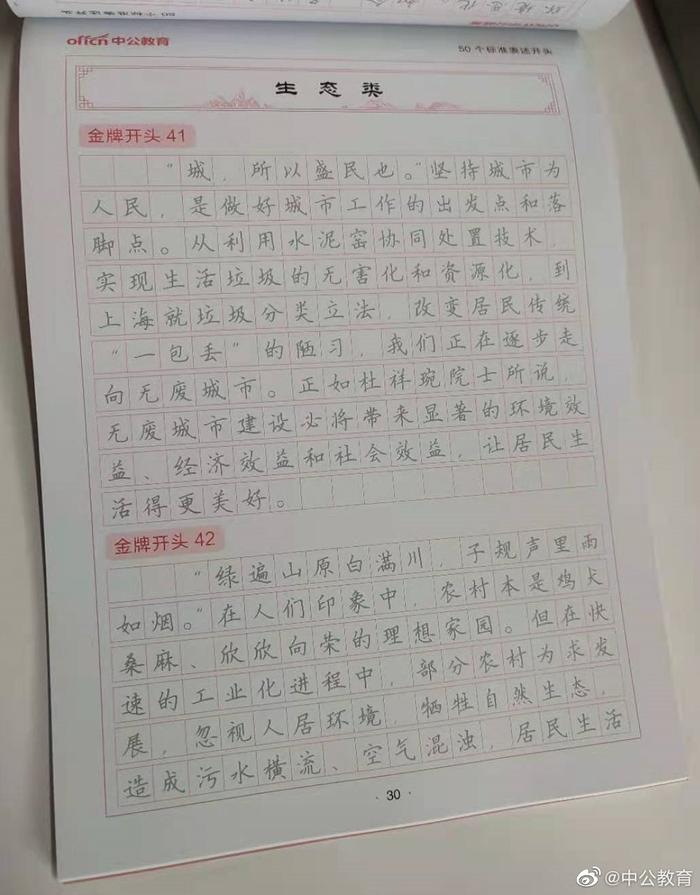 offcn中公教育
50个标准表述开头
生态类
金牌开头 41
“城，所以盛民也。”坚持城市为
人民，是做好城市工作的出发点和落
脚点。从利用水泥窑协同处置技术，
实现生活垃圾的无害化和资源化，到
上海就垃圾分类立法，改变居民传统
“一包丢”的陋习，我们正在逐步走
向无废城市。正如杜祥琬院士所说，
无废城市建设必将带来显著的环境效
益、经济效益和社会效益，让居民生
活得更美好。
金牌开头 42
“绿遍山原白满川，子规声里雨
如烟。”在人们印象中，农村本是鸡犬
桑麻、欣欣向荣的理想家园。但在快
速的工业化进程中，部分农村为求发
展，忽视人居环境，牺牲自然生态，
造成污水横流、空气混浊，居民生活
· 30 ·
@中公教育